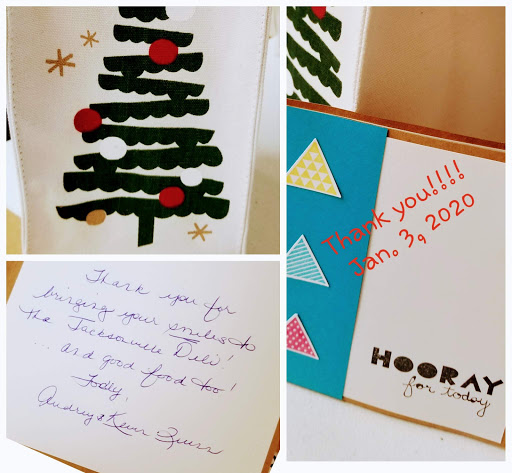 Thank you!!!!
Jan. 3, 2020
HOORAY
for today
Thank you for
bringing your smiles to
the Jacksonville Deli!
... and good food too!
Today,
Audrey & Kevin